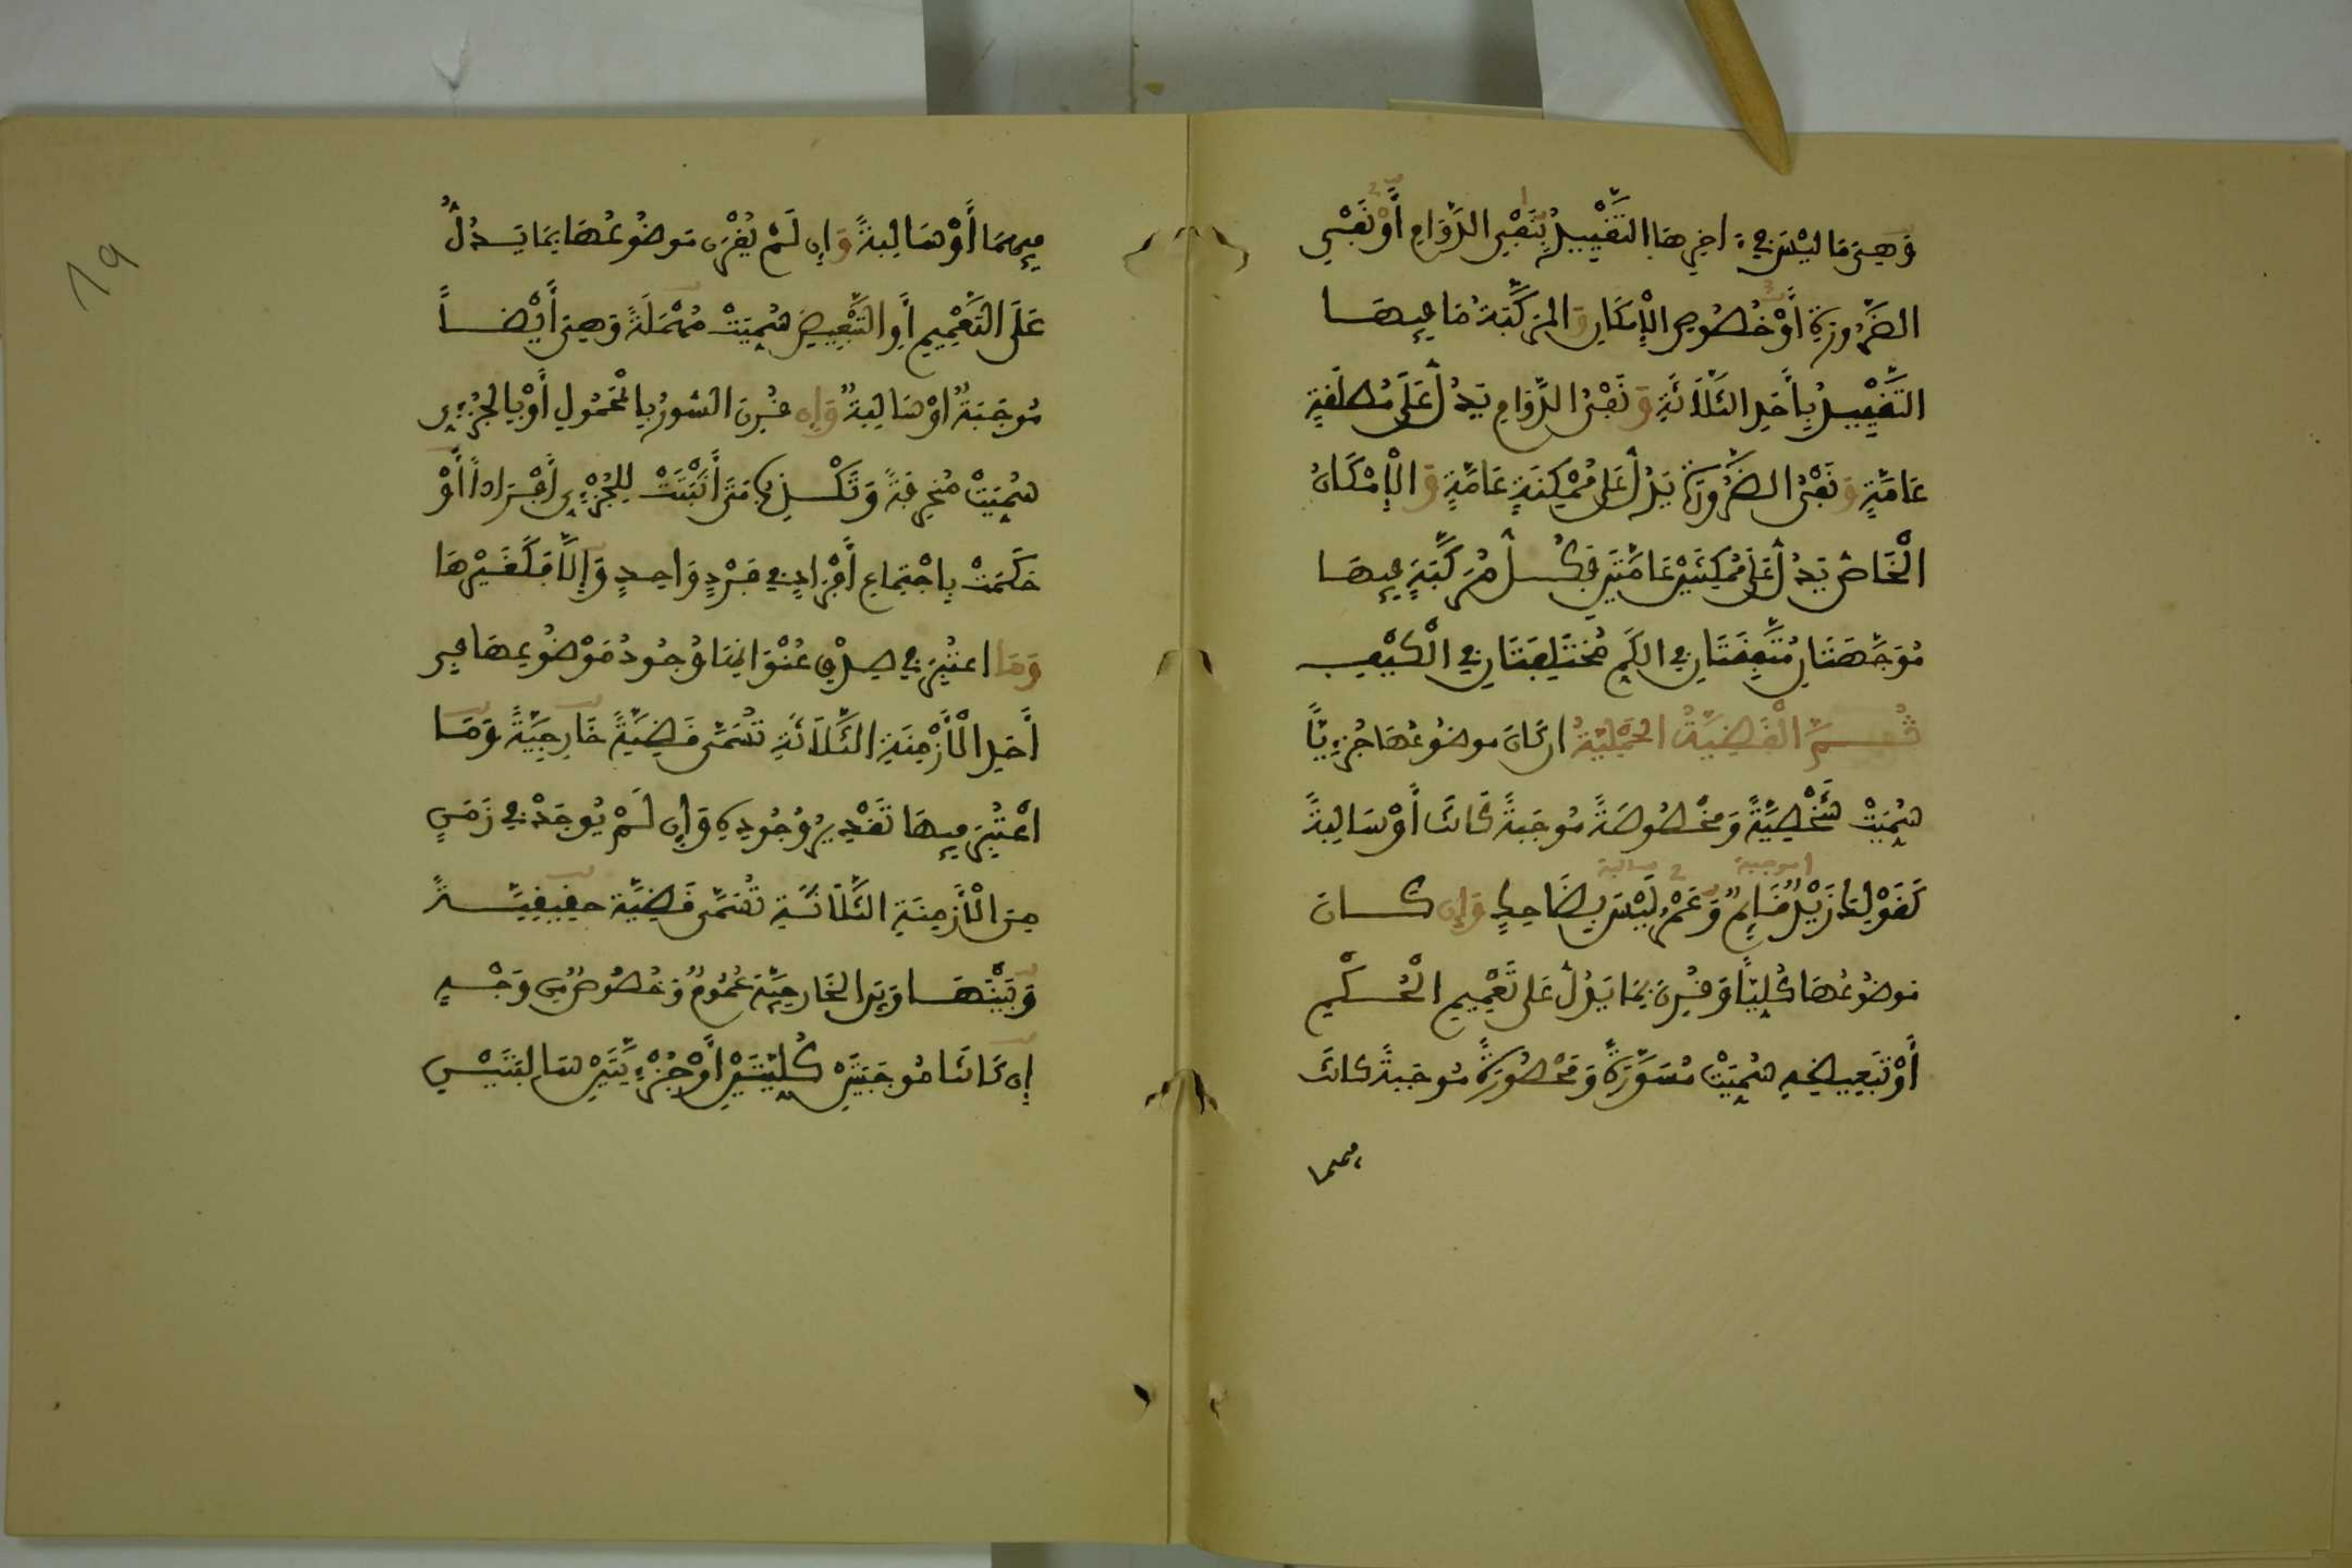 وَهِيَ مَا لَيْسَ فِي ءَاخِرِهَا التَّقْيِيدُ بِنَفْيِ الدَّوَامِ أَوْ نَفْيِ
الضَّرُورَةِ أَوْ خُصُوصِ الْإِمْكَانِ وَالْمُرَكَّبَةُ مَا فِيهَا
التَّقْيِيدُ بِأَحَدِ الثَّلَاثَةِ وَنَفْيُ الدَّوَامِ يَدُلُّ عَلَى مُطْلَقَةٍ
عَامَّةٍ وَنَفْيُ الضَّرُورَةِ يَدُلُّ عَلَى مُمْكِنَةٍ عَامَّةٍ وَالْإِمْكَانُ
الْخَاصُّ يَدُلُّ عَلَى مُمْكِنَتَيْنِ عَامَّتَيْنِ فَكُلُّ مُرَكَّبَةٍ فِيهَا
مُوَجَّهَتَانِ مُتَّفِقَتَانِ فِي الْكَمِّ مُخْتَلِفَتَانِ فِي الْكَيْفِ
ثُمَّ الْقَضِيَّةُ الْحَمْلِيَّةُ إِن كَانَ مَوْضُوعُهَا جُزْءِيًّا
سُمِّيَتْ شَخْصِيَّةً وَمَخْصُوصَةً مُوجَبَةً كَانَتْ أَوْ سَالِبَةً
1 موجبة 2 سالبة
كَقَوْلِنَا زَيْدٌ قَائِمٌ وَعَمْرٌ لَيْسَ بِضَاحِكٍ وَإِن كَانَ
مَوْضُوعُهَا كُلِّيًّا وَقُرِنَ بِمَا يَدُلُّ عَلَى تَعْمِيمِ الْحُكْمِ
أَوْ تَبْعِيضِهِ سُمِّيَتْ مُسَوَّرَةً وَمَحْصُورَةً مُوجَبَةً كَانَتْ
فيهما
فِيهِمَا أَوْ سَالِبَةً وَإِن لَمْ يُقْرَن مَوْضُوعُهَا بِمَا يَدُلُّ
عَلَى التَّعْمِيمِ أَوِ التَّبْعِيضِ سُمِّيَتْ مُهْمَلَةً وَهِيَ أَيْضًا
مُوجَبَةٌ أَوْ سَالِبَةٌ وَإِن قُرِنَ السُّورُ بِالْمَحْمُولِ أَوْ بِالْجُزْءِيِّ
سُمِّيَتْ مُنْحَرِفَةً وَتَكْذِبُ مَتَى أَثْبَتَتْ لِلْجُزْءِيِّ أَفْرَادًا أَوْ
حَكَمَتْ بِاجْتِمَاعِ أَفْرَادٍ فِي فَرْدٍ وَاحِدٍ وَإِلَّا فَكَغَيْرِهَا
وَمَا اعْتُبِرَ فِي صِدْقِ عُنْوَانِهَا وُجُودُ مَوْضُوعِهَا فِي
أَحَدِ الْأَزْمِنَةِ الثَّلَاثَةِ تُسَمَّى قَضِيَّةً خَارِجِيَّةً وَمَا
اعْتُبِرَ فِيهَا تَقْدِيرُ وُجُودِهِ وَإِن لَمْ يُوجَدْ فِي زَمَنٍ
مِنَ الْأَزْمِنَةِ الثَّلَاثَةِ تُسَمَّى قَضِيَّةً حَقِيقِيَّةً
وَبَيْنَهَا وَبَيْنَ الْخَارِجِيَّةِ عُمُومٌ وَخُصُوصٌ مِن وَجْهٍ
إِن كَانَتَا مُوجَبَتَيْنِ كُلِّيَّتَيْنِ أَوْ جُزْءِيَّتَيْنِ سَالِبَتَيْنِ
19